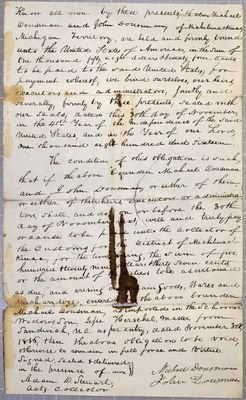 Know all men by these presents, that we Michael
Dousman and John Dousman of Michilimackinac
Michigan Territory, are held and firmly bound
unto the United States of America, in the sum of
one thousand fifty eight dollars ninety four cents
to be paid to the said United States, for
payment whereof, we bind ourselves, our heirs
executors and administrators, jointly and
severally, firmly by these presents, sealed with
our seals, dated this 30th day of November
in the 41st Year of the Independence of the said
United States, and in the Year of our Lord
one thousand eight hundred and Sixteen.
The condition of this obligation is such,
that if the above bounden Michael Dousman
and John Dousman or either of them
or either of their heirs executors or administra
tors, shall and do on or before the 30th
day of November next, well and truly pay
or cause to be paid unto the Collector of
the Customs for the District of Michilimac
kinac, for the time being, the sum of five
hundred twenty nine dollars thirty seven cents
or the amount of duties to be ascertained
as due, and arising on certain Goods, Wares and
Merchandize, entered by the above bounden
Michael Dousman, as imported in the
Sloop Herschel, Master from
Sandwich, U.C. as per entry, dated November 30th,
1816, then the above obligation to be void,
otherwise to remain in full force and virtue
Signed, Sealed & delivered
in the presence of us
Adam D. Steuart
Actg. Collector.
Michael Dousman
John Dousman